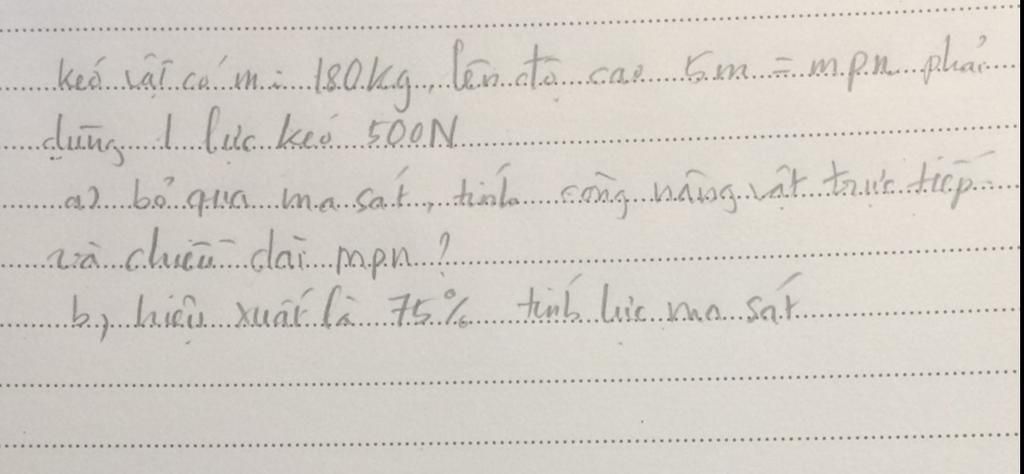 kéo vật có m = 180kg, lên độ cao 5m = mpn phải
dùng 1 lực kéo 500N
a) bỏ qua ma sát, tính công nâng vật trực tiếp
và chiều dài mpn?
b, hiệu xuất là 75% tính lực ma sát